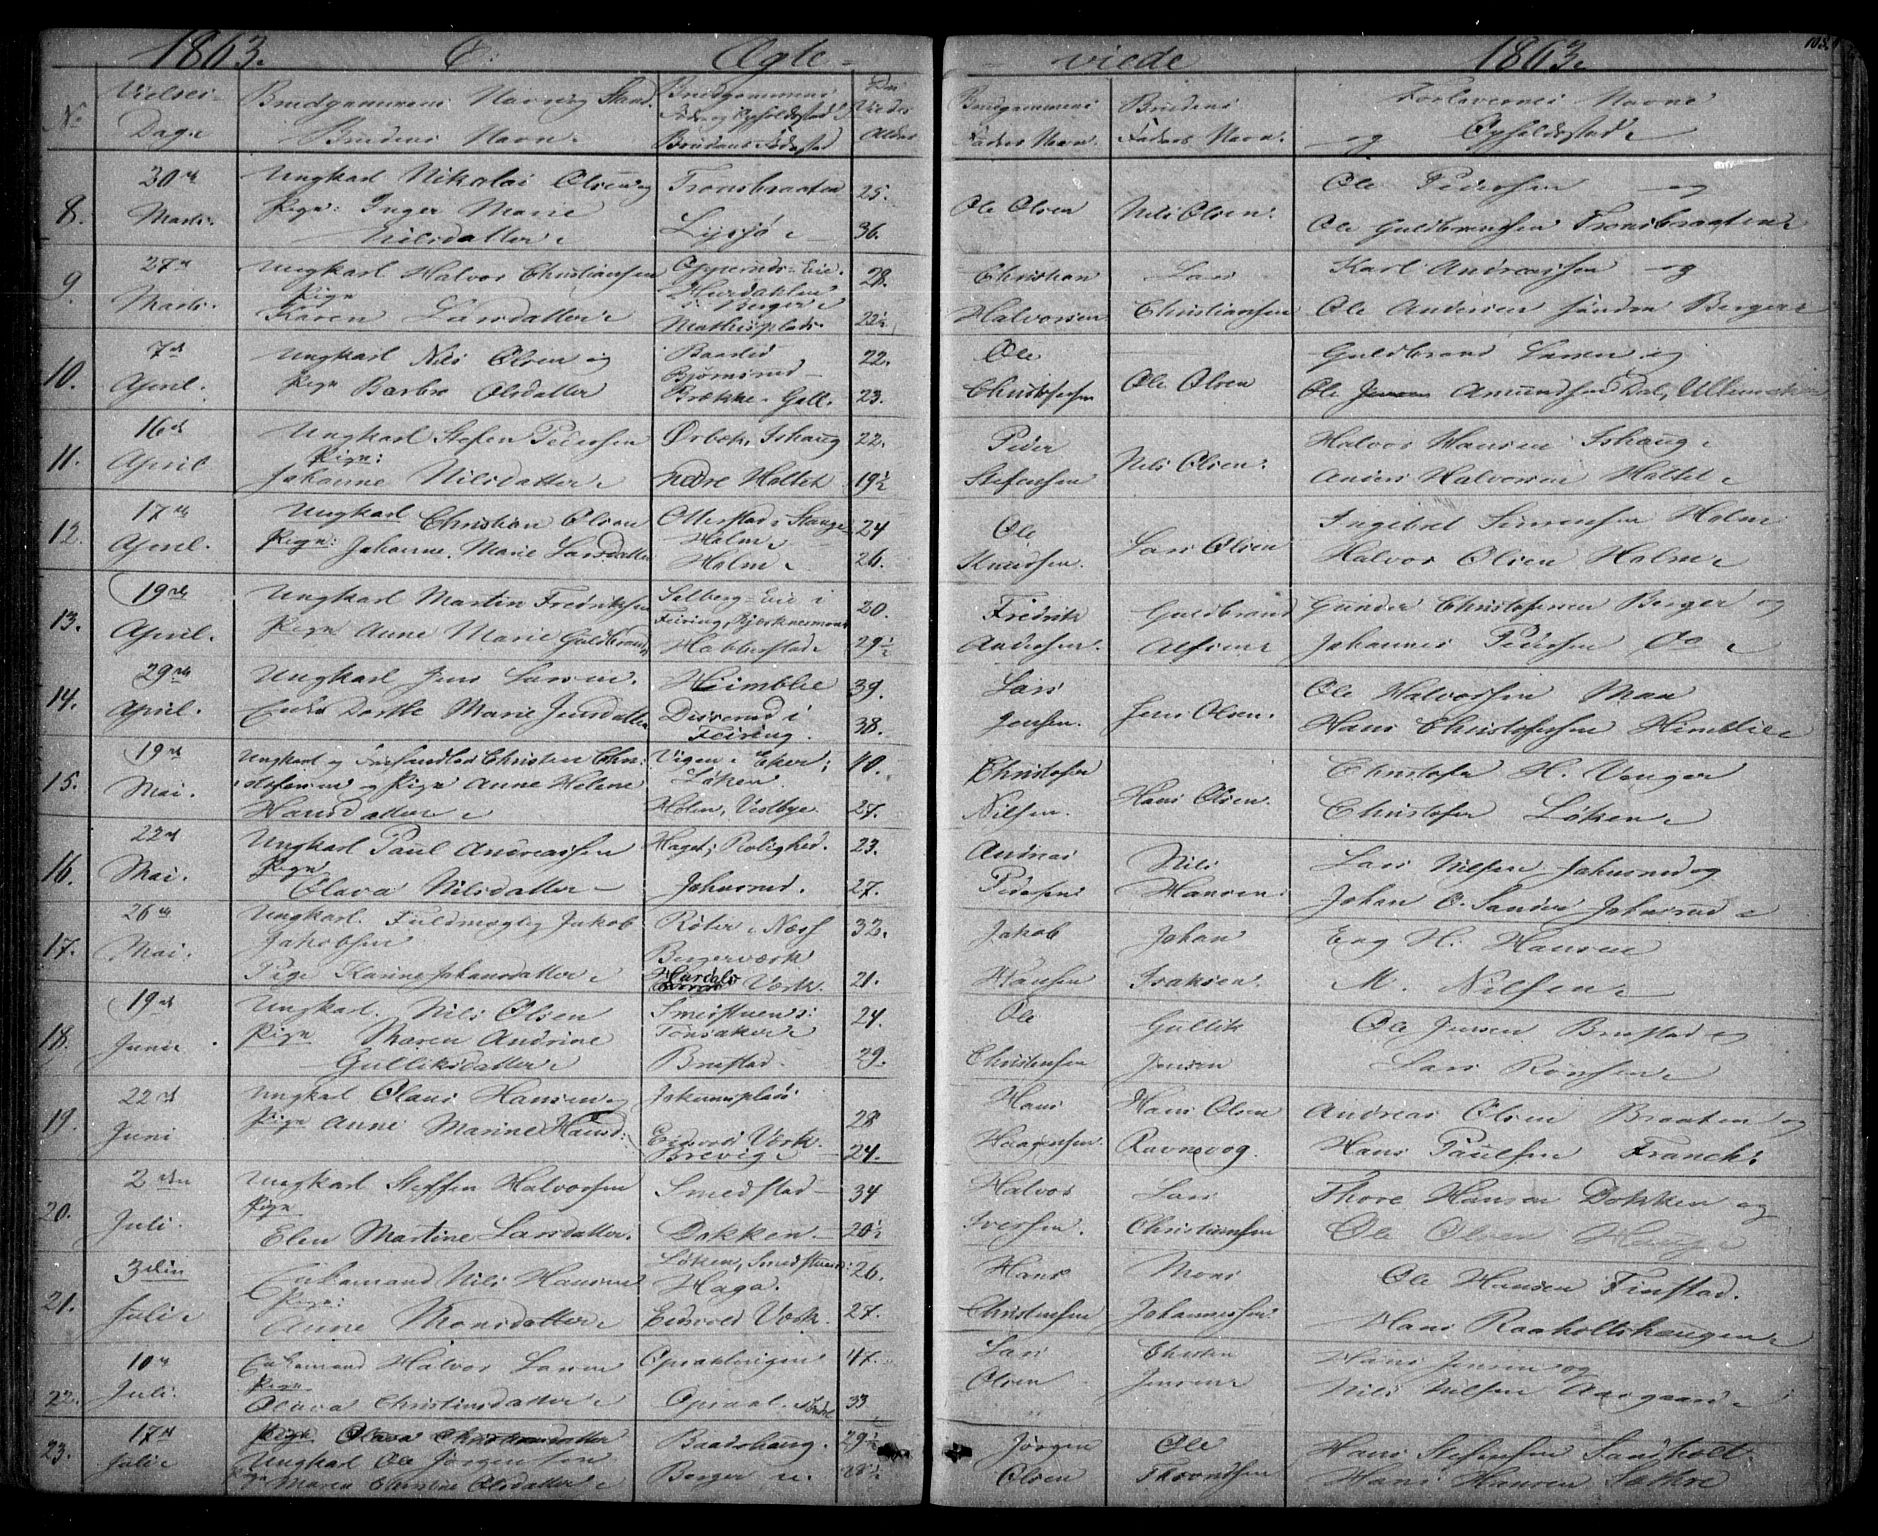 1863. C: Ægte- viede 1863. 103.
No
Vielses-
Dag.
Brudgommens Navn og Stand.
Brudens Navn.
Brudgommens
Føde og Opholdssted
Brudens Fødested
Den
Viedes
Alder
Brudgommens
Faders Navn.
Brudens
Faders Navn.
Forlovernes Navne
og Opholdssted
8. 30 Marts. Ungkarl Nikolai Olsen og Tronsbraaten 25. Ole Olsen Nils Olsen. Ole Pedersen og
Pige: Inger Marie
Nilsdatter Lysjø 36. Ole Guldbrandsen Tronsbraaten
9. 27 Marts. Ungkarl Halvor Christiansen 28. Christian Lars Karl Andreassen og
Pige Hurdahlen
Karen Larsdatter Berger
Mathisplads 22½ Halvorsen Christiansen Ole Andersen Søndre Berger
10. 7 April. Ungkarl Nils Olsen og 22. Ole Ole Olsen Guldbrand Larsen og
Bjørnsrud
Pige Barbro Olsdatter Brække 23. Christofersen Ole Amundsen Dal,
11. 16 April Ungkarl Stefen Pedersen Ørbek, Ishaug 22. Peder Nils Olsen. Halvor Hansen Ishaug
Pige:
Johanne Nilsdatter nedre Holtet 19½ Stefensen Anders Halvorsen Holtet
12. 17 April. Ungkarl Christian Olsen Otterstad i Stange 24 Ole Lars Olsen Ingebret Sørensen Holm
Holm
Pige: Johanne Marie Larsdatter Holm 26. Knudsen. Halvor Olsen Holm
13. 19 April. Ungkarl Martin Fredriksen Eie i 20. Fredrik Guldbrand Gunder Christofersen Berger og
Feiring,
Pige Anne Marie Guldbrands Habberstad 29½ Andersen. Alfsen Johannes Pedersen
14. 29 April. Ungkarl Jens Larsen. Himblie 39. Lars Jens Olsen. Ole Halvorsen
Enke Dorthe Marie Jensdatter Disrud i
Feiring. 38. Jensen. Hans Christofersen Himblie
15. 19 Mai. Ungkarl og Christen Chri- Vigen i Eker; 40. Christofer Hans Olsen. Christofer H. Venger
stofersen og Pige Anne Helene Løken
Hansdatter Holm, Vestbye. 27. Nilsen. Christofer Løken
16. 22 Mai. Ungkarl Paul Andreassen Haga; Rolighed. 23. Andreas Nils Lars Nilsen Johnsrud og
Pige
Olava Nilsdatter Johnsrud. 27. Pedersen Hansen Johan O. Sander Johnsrud
17. 26 Mai. Ungkarl. Fuldmægtig Jakob Næss 32. Jakob Johan H. Hansen
Jakobsen Bergerværk
Pige Karine Johansdatter Hurdals Værk. 21. Hansen Isaksen. M. Nilsen
18. 19 Juni Ungkarl. Nils Olsen Smidstuen 24. Ole Gullik Ole Jensen Brustad og
Pige Maren Andrine Tønsaker
Gulliksdatter Brustad. 29. Christensen Jensen Lars
19. 22 Juni Ungkarl Olaus Hansen og 28 Hans Hans Olsen Andreas Olsen Braaten og
Pige Anne Marine Hansd: Eidsvold Værk
Brevig 24. Haagensen. Ravnsvog. Hans Paulsen Franck.
20. 2den Juli. Ungkarl Steffen Halvorsen Smedstad 34 Halvor Lars Thore Hansen Dokken og
Pige
Elen Martine Larsdatter. Dokken 20½ Iversen. Christiansen Ole Olsen Hauge
21. 3die Juli Enkemand Nils Hansen Løken, Smedstuen 26. Hans Mons Ole Hansen Finstad.
Haga.
Pige:
Anne Monsdatter Eidsvold Værk. 27. Christensen Johannessen Hans Raaholtshaugen
22. 10 Juli. Enkemand Halvor Larsen 47. Lars Hans Jensen og
Pige
Olava Christinsdatter Opsal Nordre 33 Olsen Jensen Nils Nilsen Aasgaard
23. 17 Juli Pige Olava Christiansdatter Baadshaug. 29½ Jørgen Ole Hans Stefensen Sandholt.
Ungkarl Ole Jørgensen
Pige Maren Christine Olsdatter Berger 28½ Olsen Thorndsen Hans Hansen Sættre